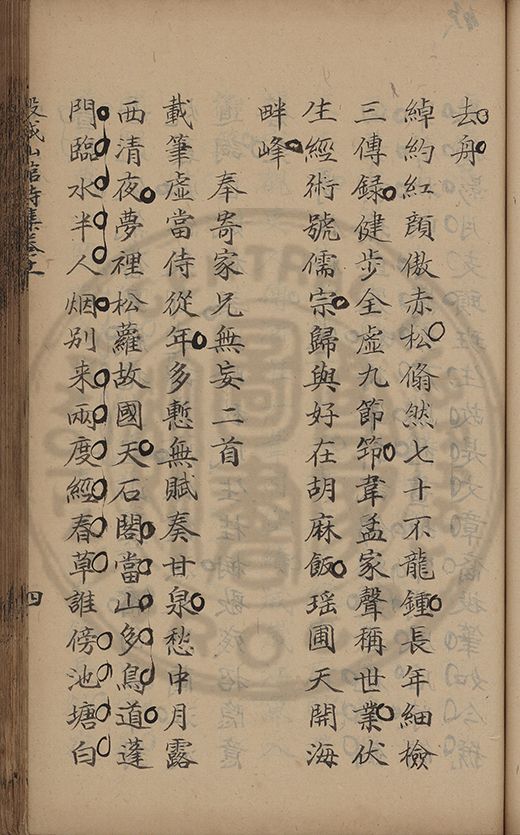 去舟
綽約紅顔傲赤松翛然七十不龍鍾長年細檢
三傳錄健步全虛九節筇韋孟家聲稱世業伏
生經術號儒宗歸與好在胡麻飯瑶圃天開海
畔峰
奉寄家兄無妄二首
載筆虛當侍從年多慙無賦奏甘泉愁中月露
西清夜夢裡松蘿故國天石閣當山多鳥道蓬
門臨水半人烟别来兩度經春草誰傍池塘白
城山館詩集卷
四